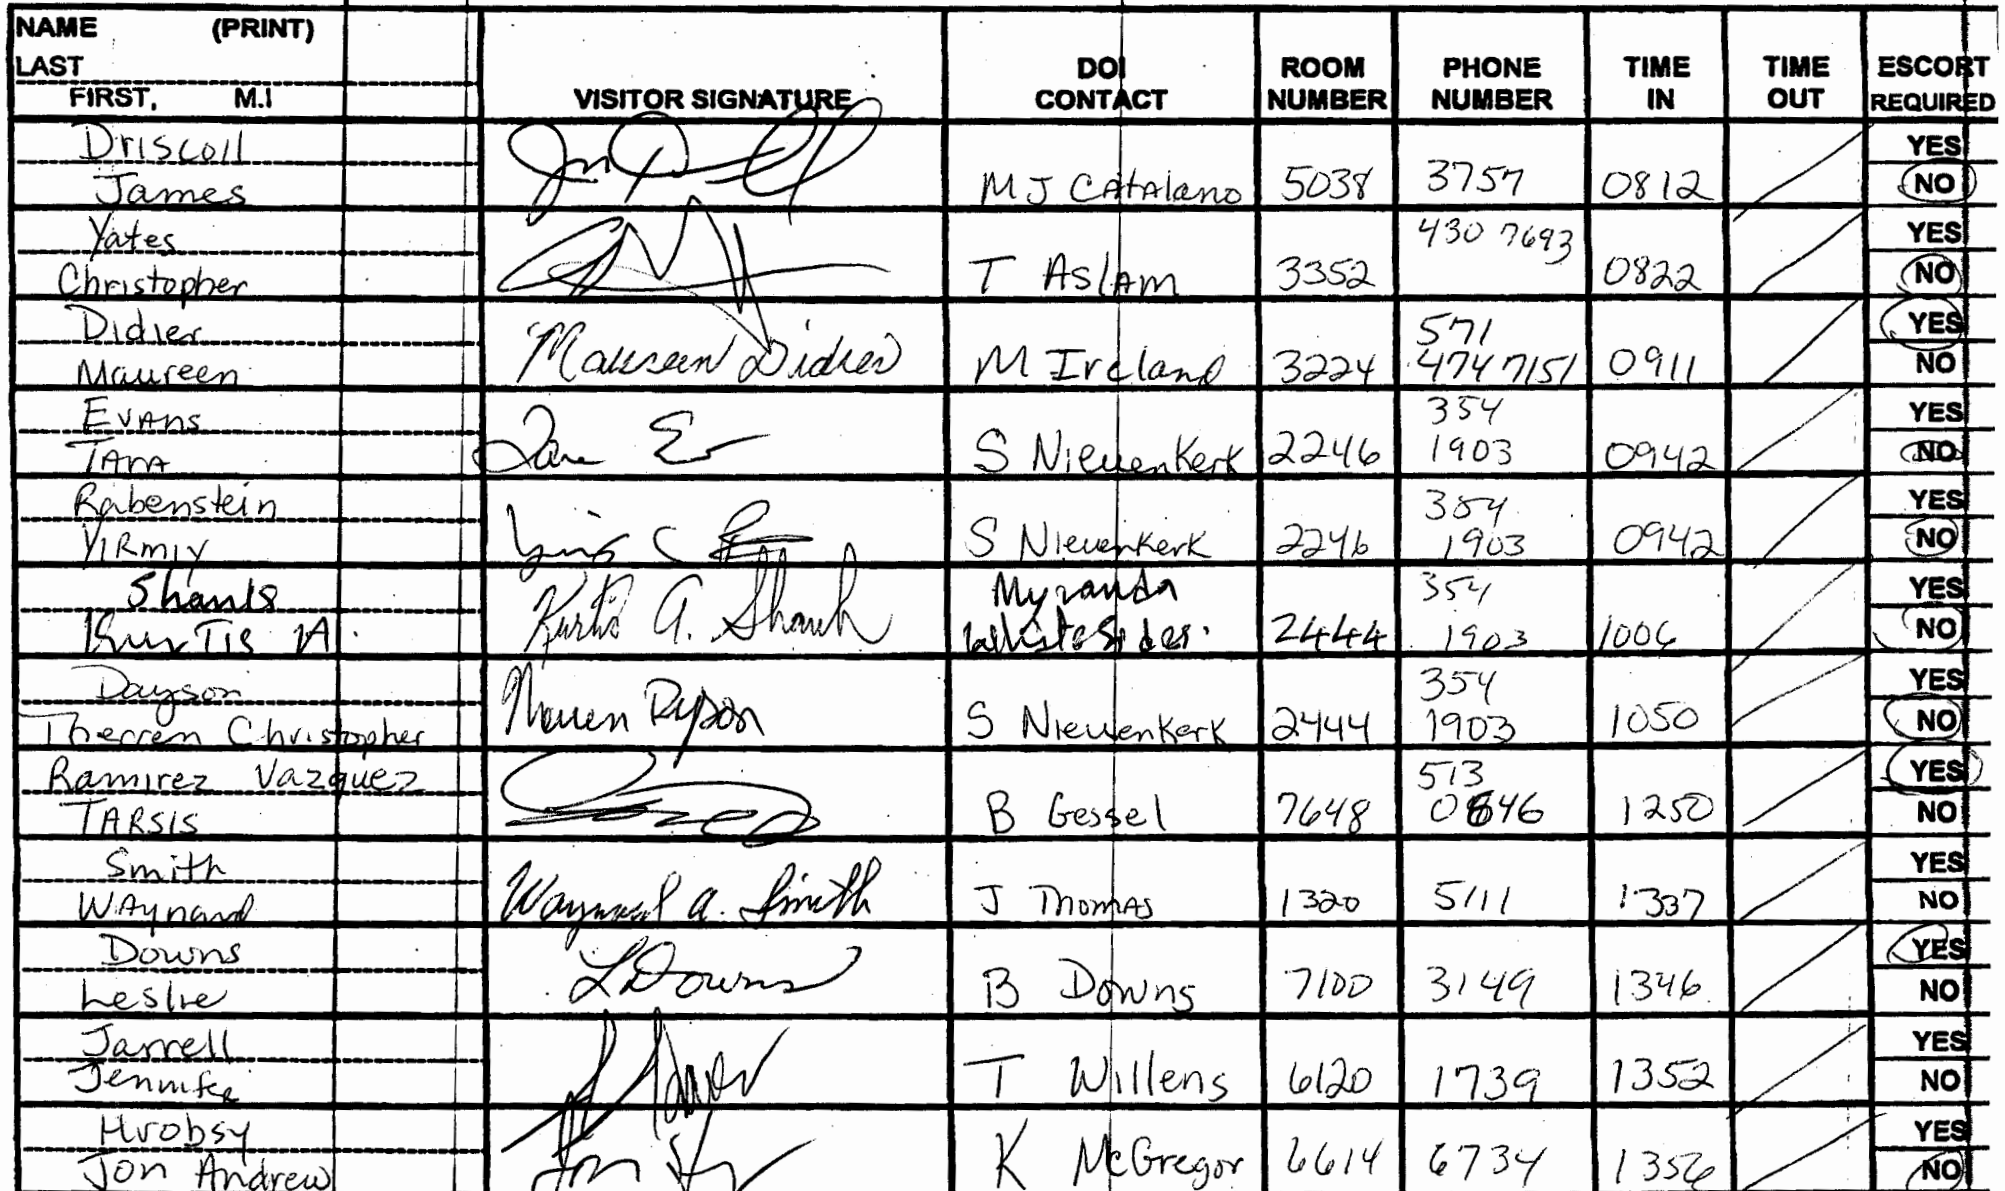 NAME (PRINT)
LAST
FIRST, M.I
VISITOR SIGNATURE
DOI
CONTACT
ROOM
NUMBER
PHONE
NUMBER
TIME
IN
TIME
OUT
ESCORT
REQUIRED
Driscoll
James
MJ Catalano 5038 3757 0812
YES
NO
Yates
Christopher
T Aslam 3352 430 7693 0822
YES
NO
Didier
Maureen
Maureen Didier
M Ireland 3224 571
474 7151 0911
YES
NO
Evans
Tara
S Nieuenkerk 2246 354
1903 0942
YES
NO
Rabenstein
Yirmiy
S Nieuenkerk 2246 354
1903 0942
YES
NO
Shanks
Kurtis A.
Kurtis A. Shank
Myranda
Whitesides. 2444 354
1903 1006
YES
NO
Dayson
Christopher
S Nieuenkerk 2444 354
1903 1050
YES
NO
Ramirez Vazquez
TARSIS
B Gessel 7648 513
0646 1250
YES
NO
Smith
Waynard
Waynard A. Smith
J Thomas 1320 5111 1337
YES
NO
Downs
Leslie
L Downs
B Downs 7100 3149 1346
YES
NO
Jarrell
Jennifer
T Willens 6120 1739 1352
YES
NO
Hrobsy
Jon Andrew
K McGregor 6614 6734 1356
YES
NO